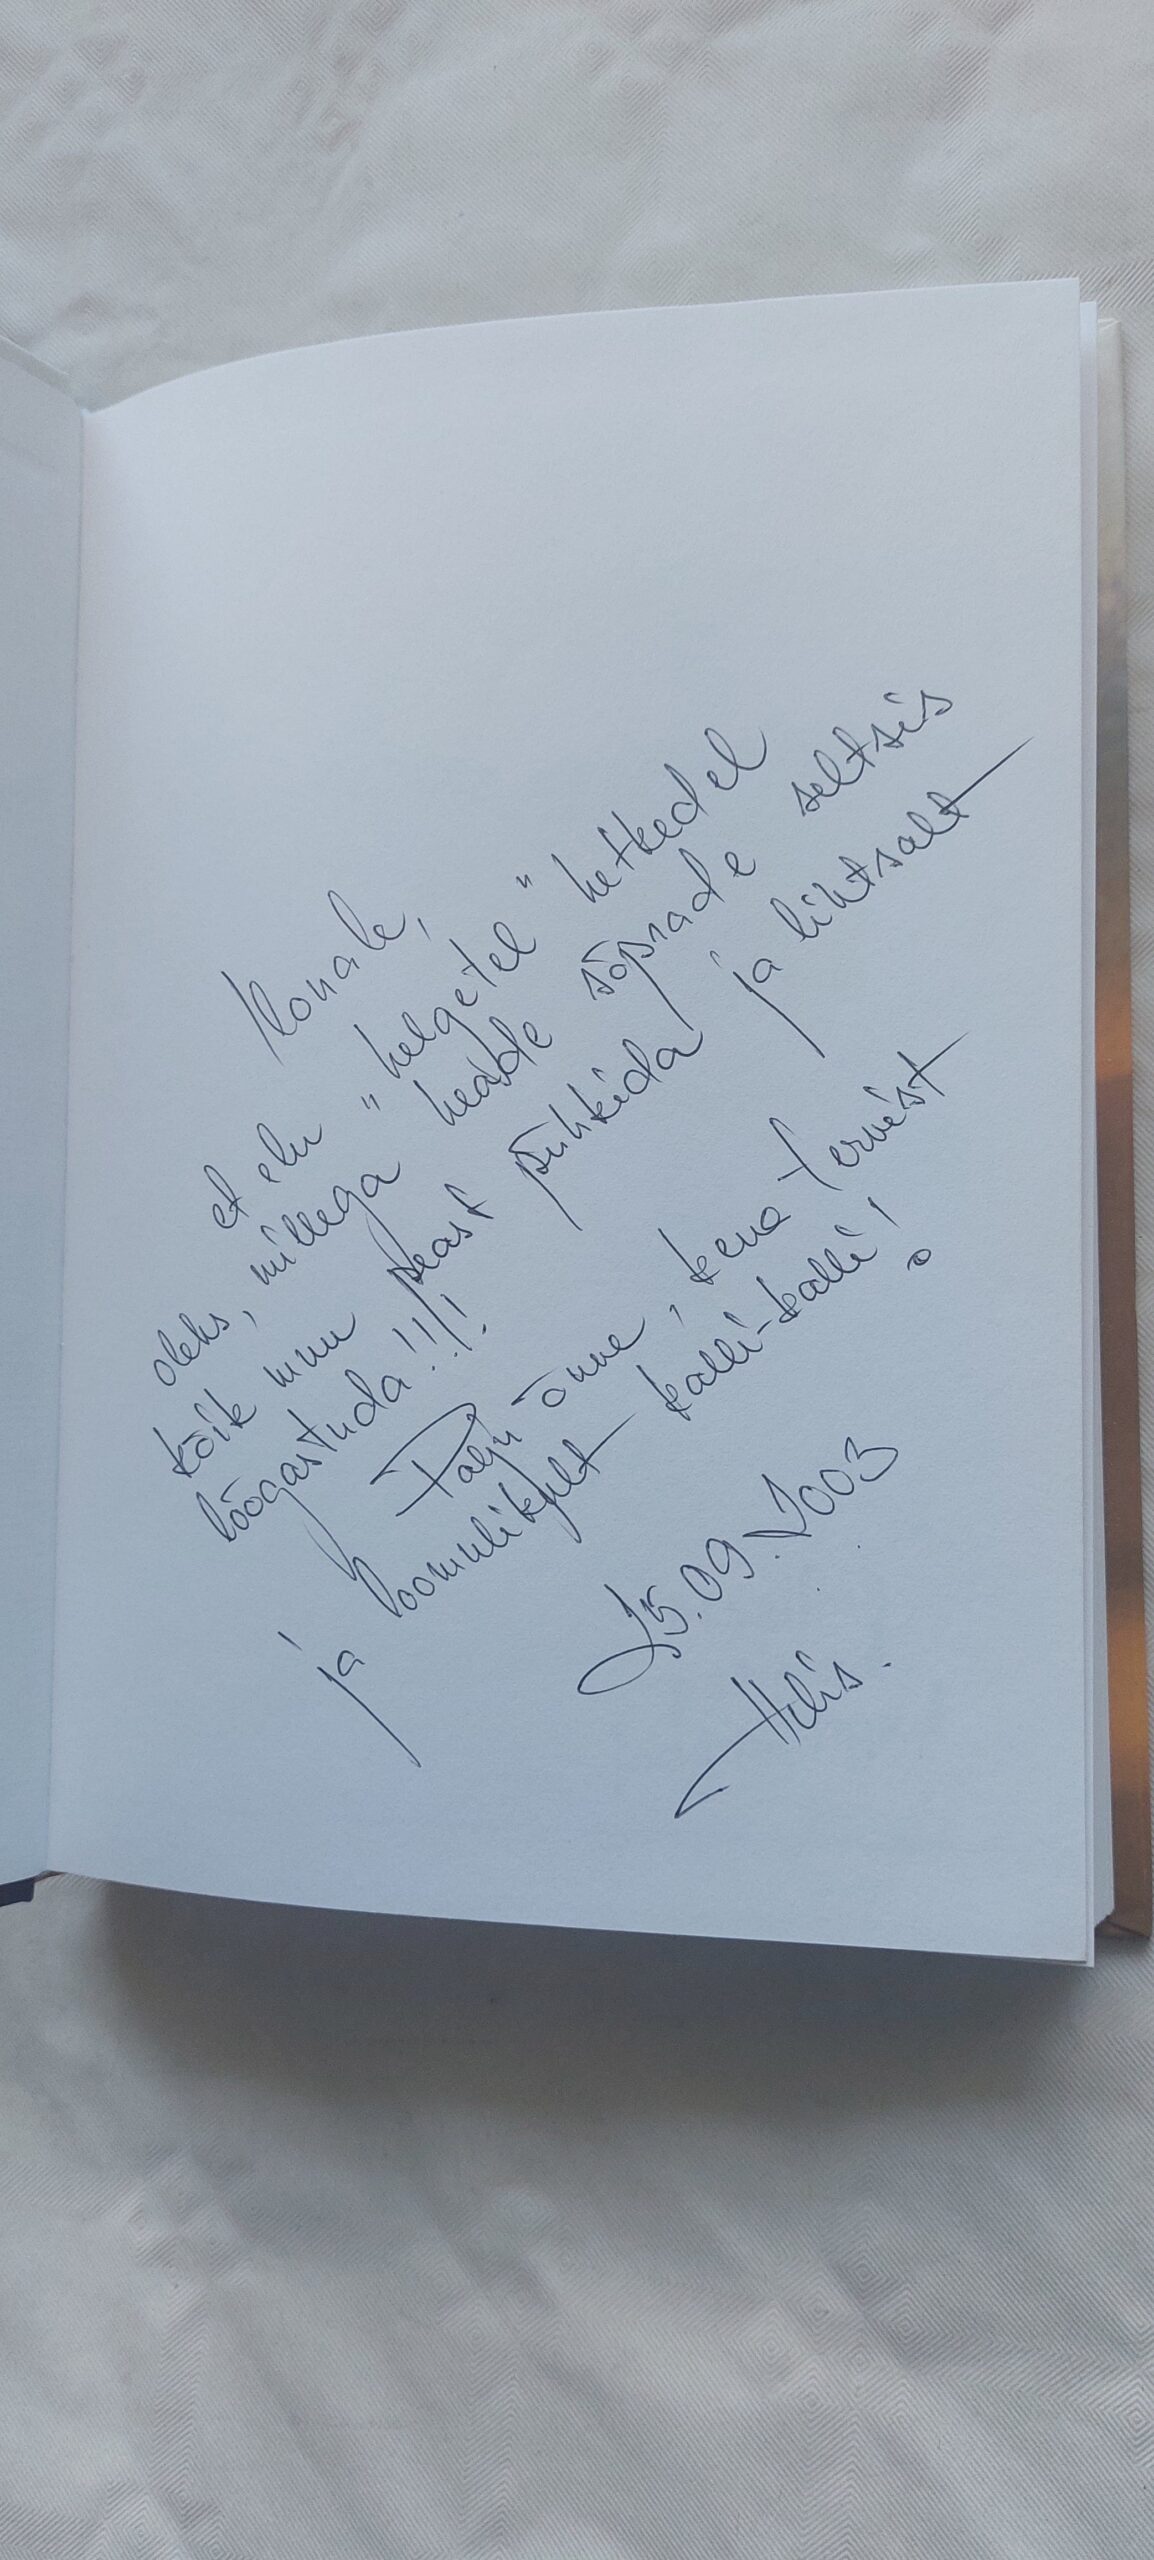 Ilonale,
et elu "helgetel" hetkedel
oleks, millega heade sõprade seltsis
kõik muu peast pühkida ja lihtsalt
lõõgastuda!!!!
Palju õnne, kena tervist
ja loomulikult kalli-kalli!
25.09.2003
Helis.